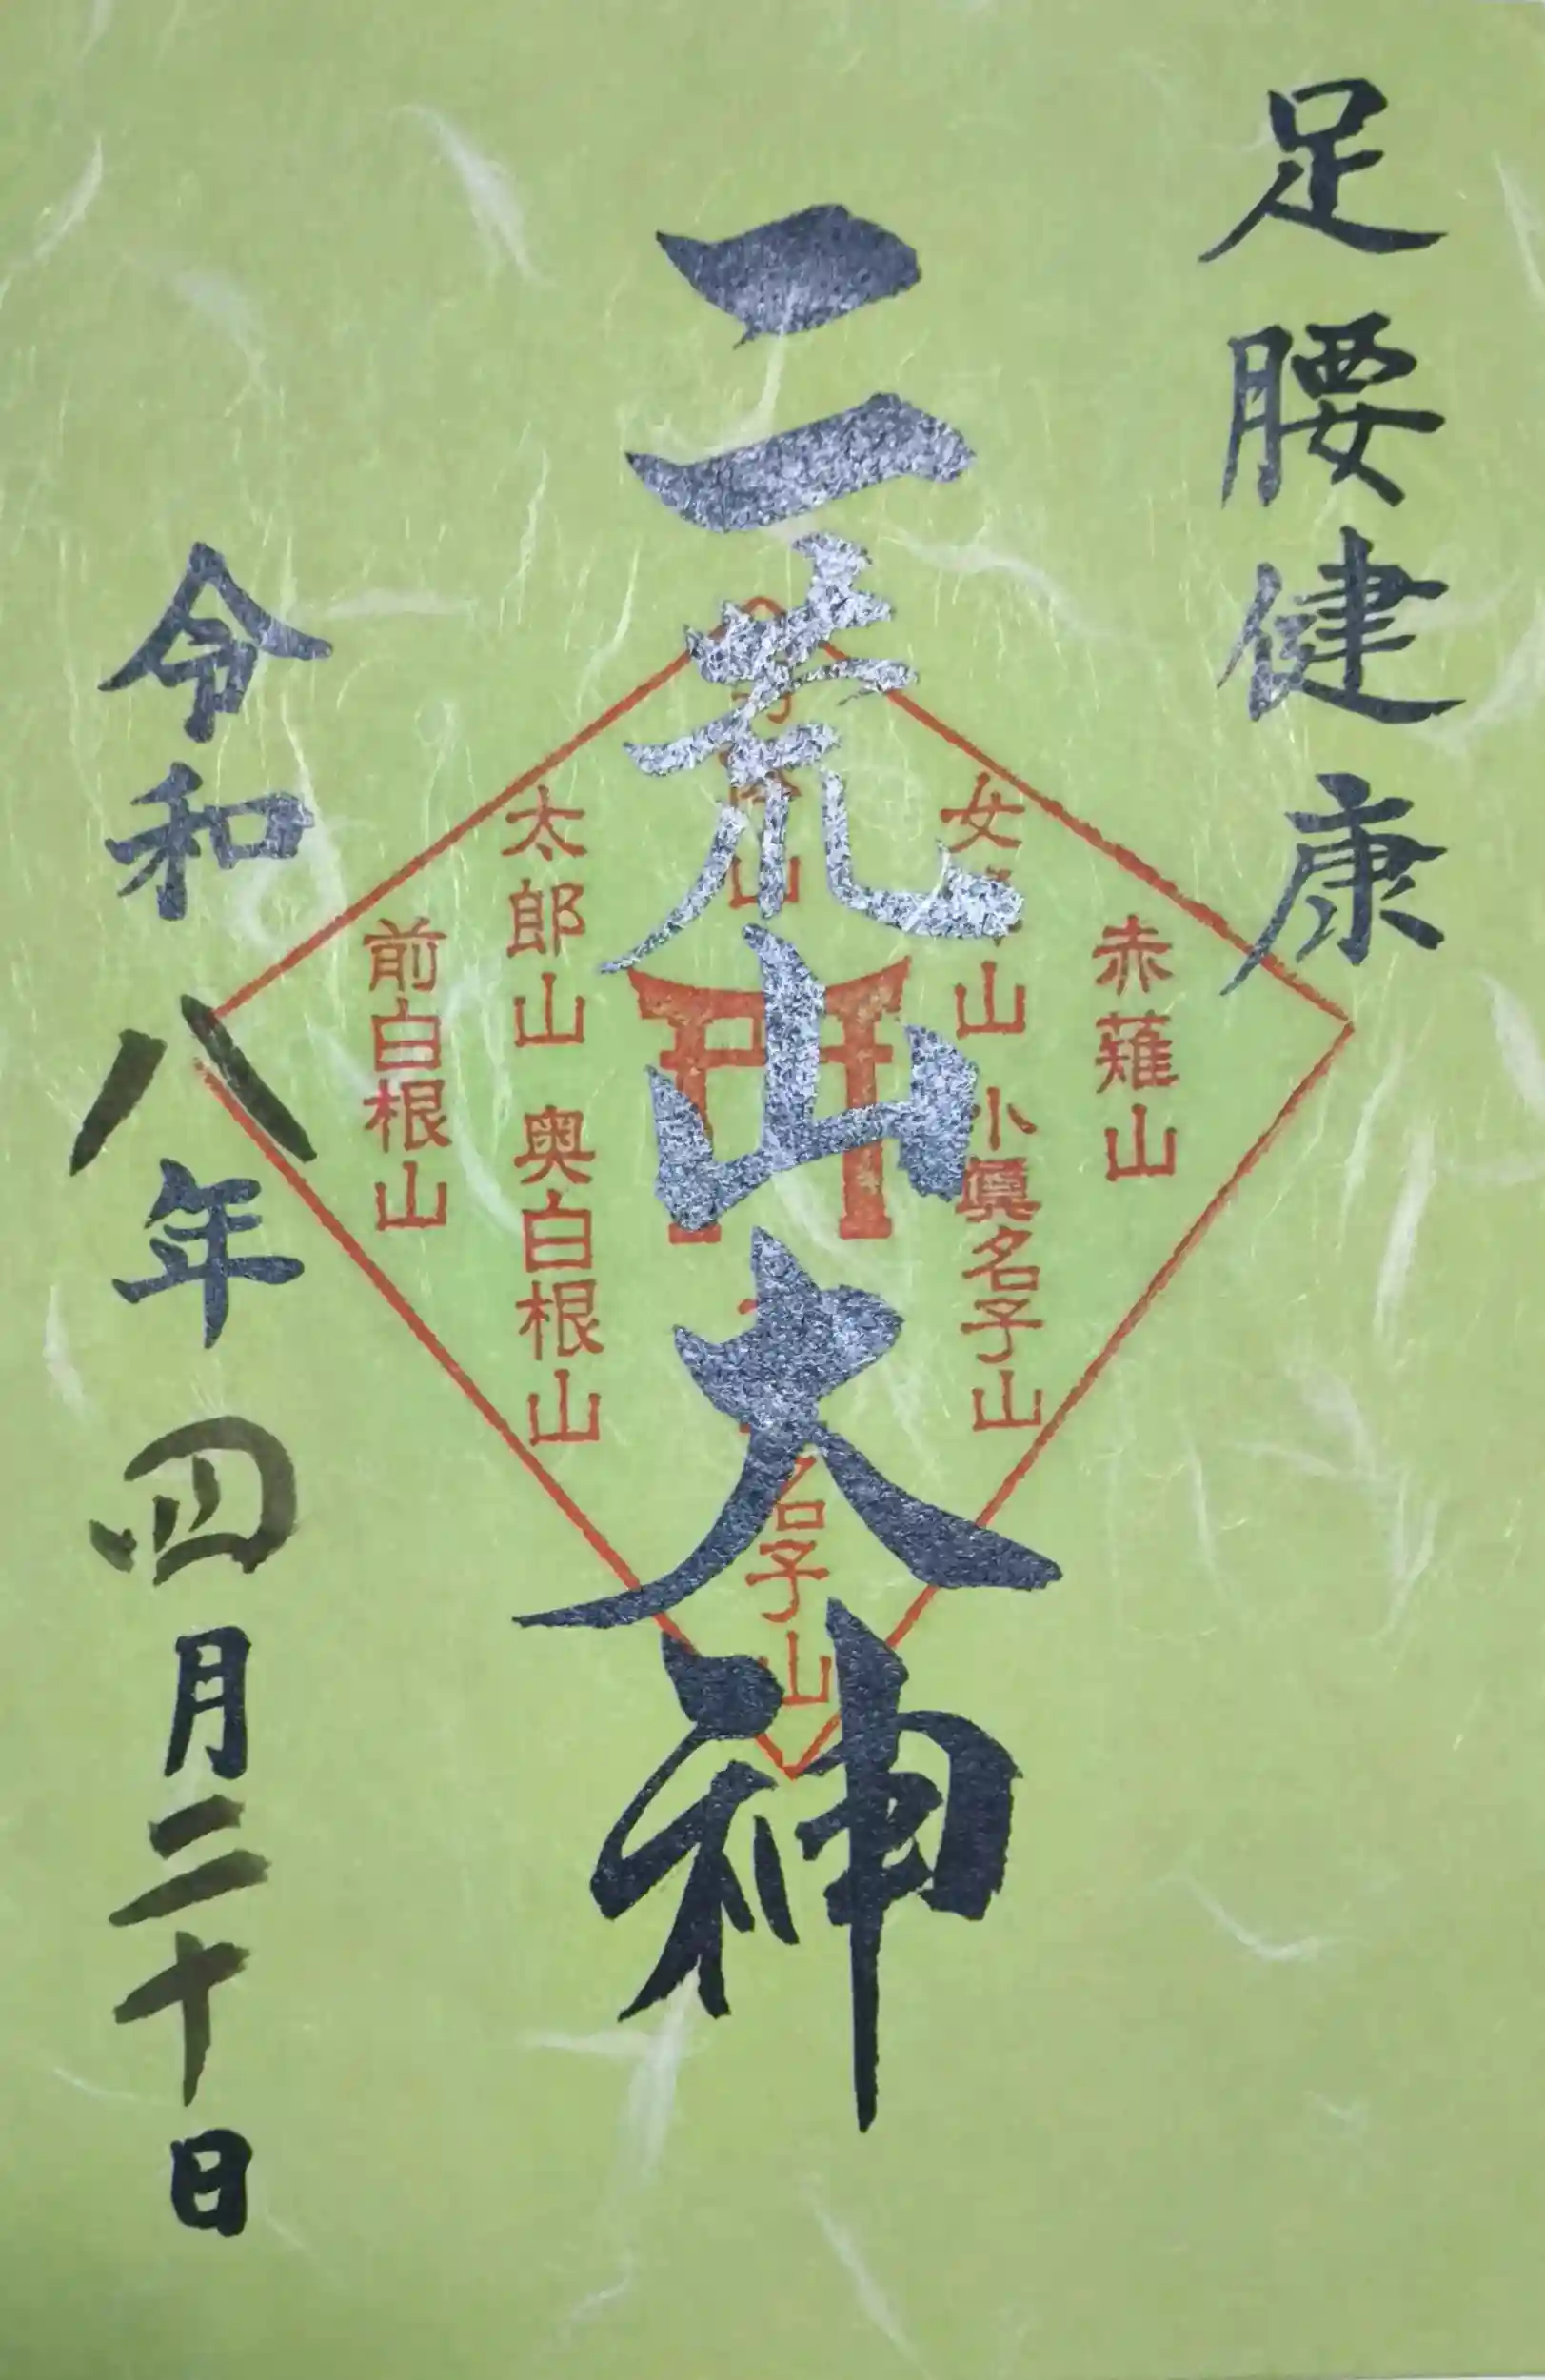 足腰健康
二荒山大神
令和八年四月二十日
赤薙山
女 山
小眞名子山
山
名子山
太郎山
奥白根山
前白根山